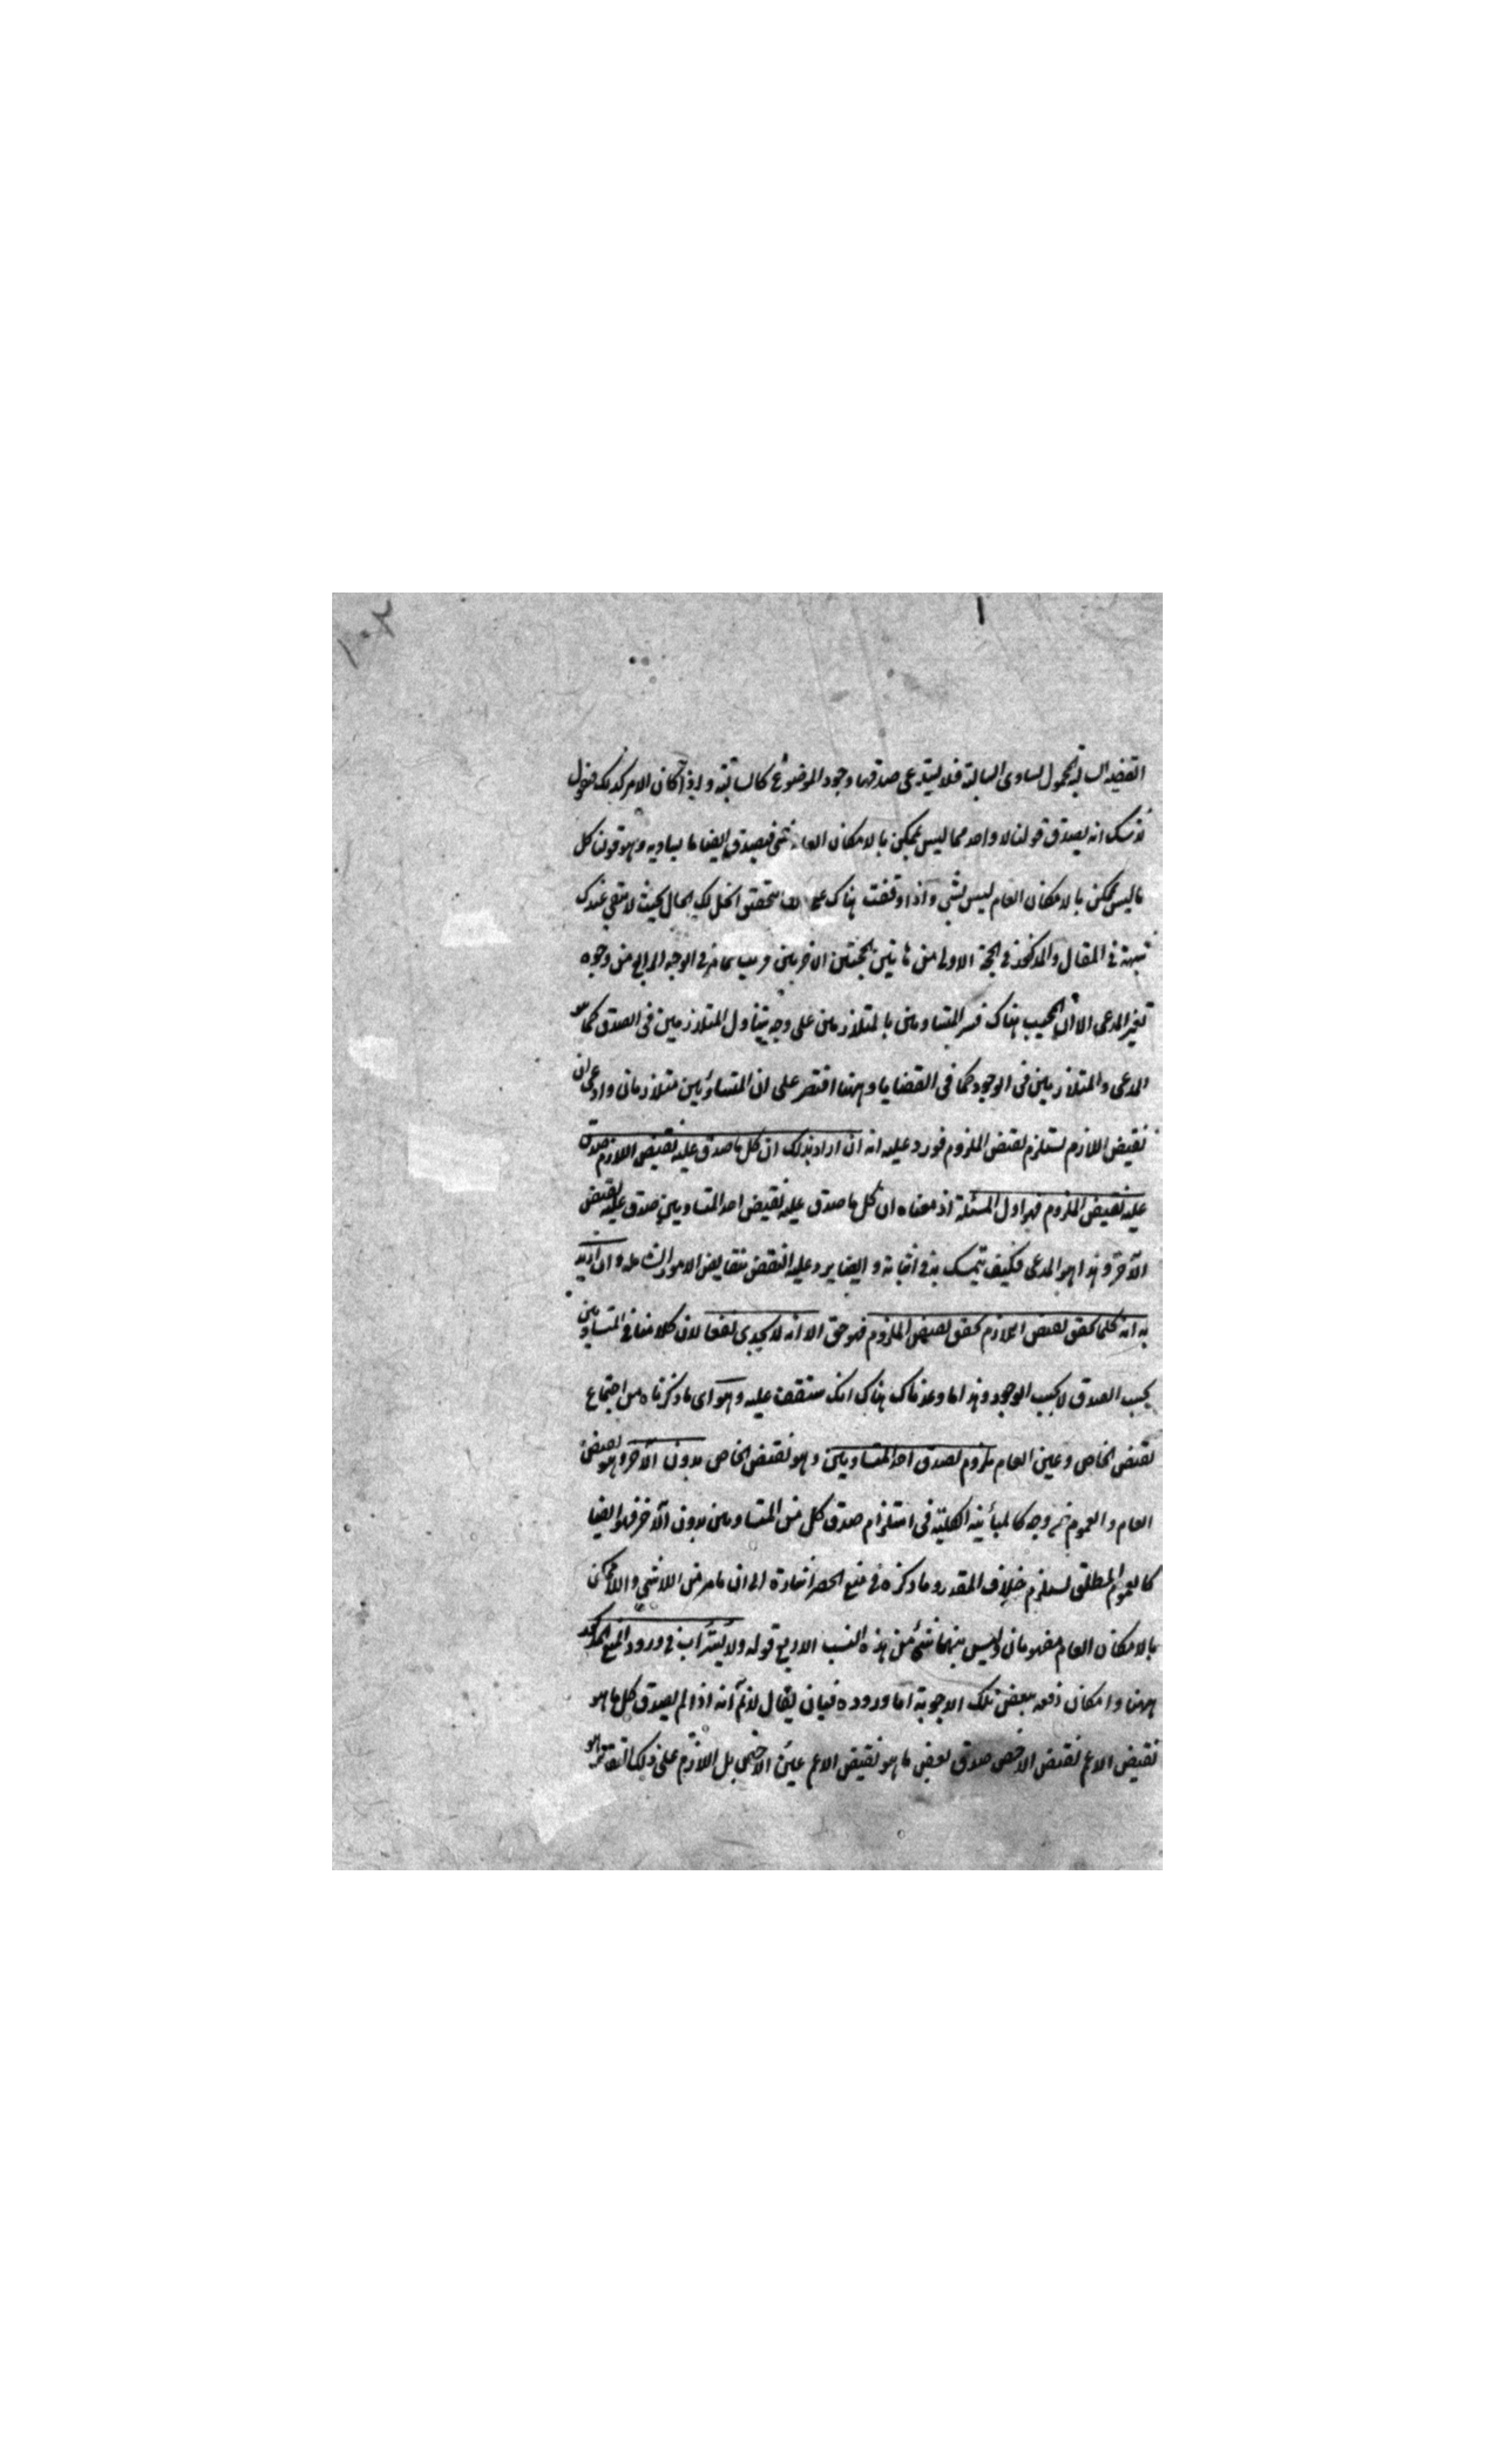 القضية السالبة المحمول يساوى السالبة فلا يستدعى صدقها وجود الموضوع كالسالبة وإذا كان الامر كذلك فنقول
لا شك انه يصدق قولنا لا واحد مما ليس بممكن بالامكان العام بشئ فيصدق ايضا ما يساويه وهو قولنا كل
ما ليس بممكن بالامكان العام ليس بشئ واذا وقفت هناك على ما يتحقق انحل لك الحال بحيث لا تبقى عندك
شبهة فى المقال والمذكور فى الحجة الاولى من هاتين الحجتين الاخريين قريب مما مر فى الوجه الرابع من وجوه
تغيير المدعى الا ان المجيب هناك فسر المتساويين بالمتلازمين على وجه يتناول المتلازمين فى الصدق كما هو
المدعى والمتلازمين فى الوجود كما فى القضايا وههنا اقتصر على ان المتساويين متلازمان وادعى ان
نقيض اللازم يستلزم نقيض الملزوم فورد عليه انه ان اراد بذلك ان كل ما صدق عليه نقيض اللازم صدق
عليه نقيض الملزوم فهو اول المسئلة اذ معناه ان كل ما صدق عليه نقيض احد المتساويين صدق عليه نقيض
الآخر وهذا هو المدعى فكيف يتمسك به فى اثباته و ايضا يرد عليه النقض بنقايض الامور الشاملة وان اريد
به انه كلما تحقق نقيض اللازم تحقق نقيض الملزوم فهو حق الا انه لا يجدى نفعا لان كلامنا فى المتساويين
بحسب الصدق لا بحسب الوجود وهذا ما وعدناك هناك انك ستقف عليه وهو اى ما ذكرناه من اجتماع
نقيض الخاص وعين العام ملزوم لصدق احد المتساويين وهو نقيض الخاص بدون الآخر وهو نقيض
العام والعموم من وجه كالمباينة الكلية فى استلزام صدق كل من المتساويين بدون الآخر فهو ايضا
كالعموم المطلق يستلزم خلاف المقدر وما ذكره فى منع الحصر اشارة الى ان ما مر من اللاشئ واللاممكن
بالامكان العام مفهومان وليس بينهما شئ من هذه النسب الاربع قوله ولا يستراب فى ورود المنع المذكور
ههنا وامكان دفعه ببعض تلك الاجوبة اما وروده فبان يقال لانم انه اذا لم يصدق كل ما هو
نقيض الاعم نقيض الاخص صدق بعض ما هو نقيض الاعم عين الاخص بل اللازم على ذلك التقدير هو